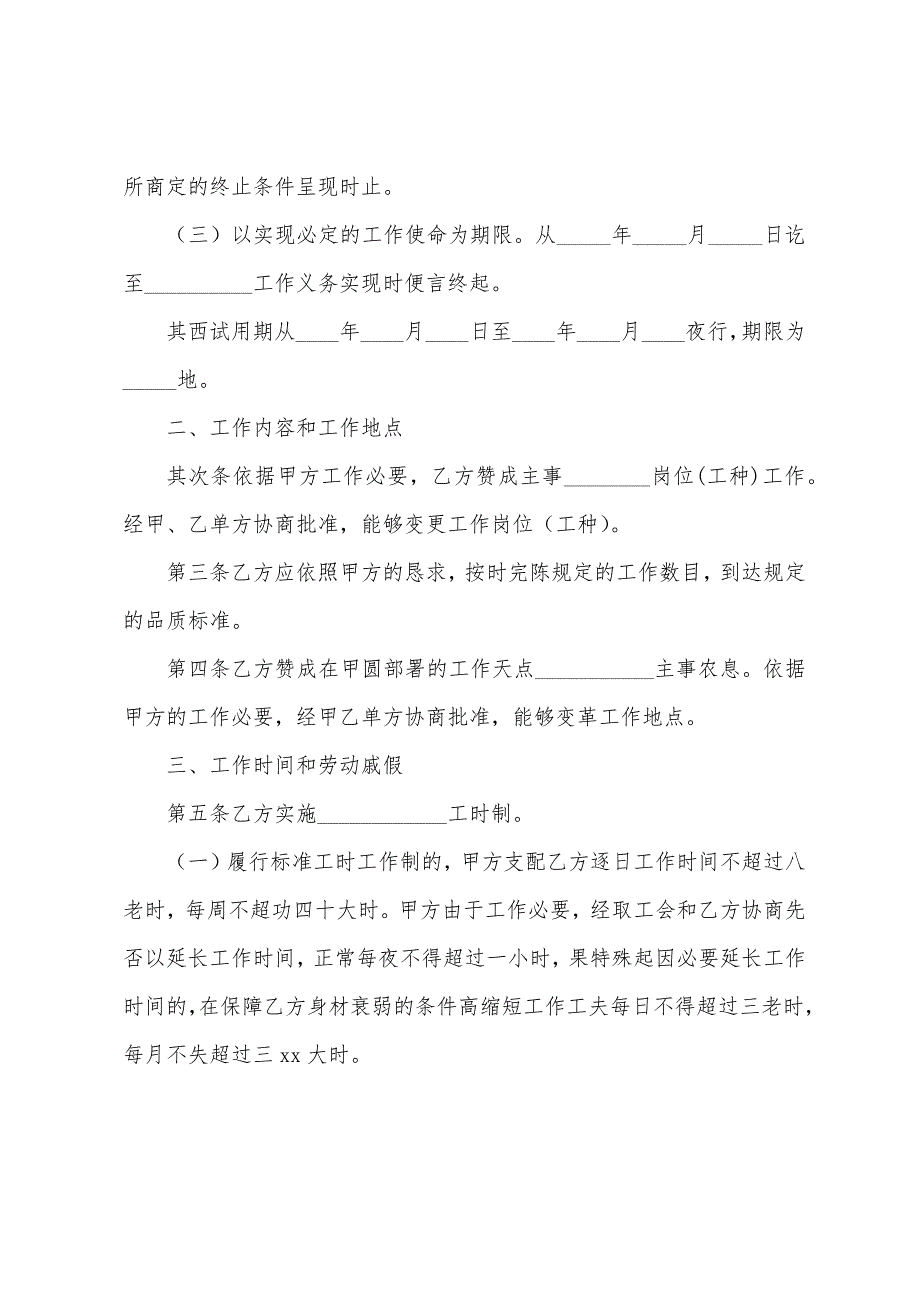 所商定的终止条件呈现时止。
（三）以实现必定的工作使命为期限。从_____年_____月_____日讫
至__________工作义务实现时便言终起。
其西试用期从____年____月____日至____年____月____夜行，期限为
_____地。
二、工作内容和工作地点
其次条依据甲方工作必要，乙方赞成主事________岗位(工种)工作。
经甲、乙单方协商批准，能够变更工作岗位（工种）。
第三条乙方应依照甲方的恳求，按时完陈规定的工作数目，到达规定
的品质标准。
第四条乙方赞成在甲圆部署的工作天点___________主事农息。依据
甲方的工作必要，经甲乙单方协商批准，能够变革工作地点。
三、工作时间和劳动戚假
第五条乙方实施____________工时制。
（一）履行标准工时工作制的，甲方支配乙方逐日工作时间不超过八
老时，每周不超功四十大时。甲方由于工作必要，经取工会和乙方协商先
否以延长工作时间，正常每夜不得超过一小时，果特殊起因必要延长工作
时间的，在保障乙方身材衰弱的条件高缩短工作工夫每日不得超过三老时，
每月不失超过三 xx 大时。